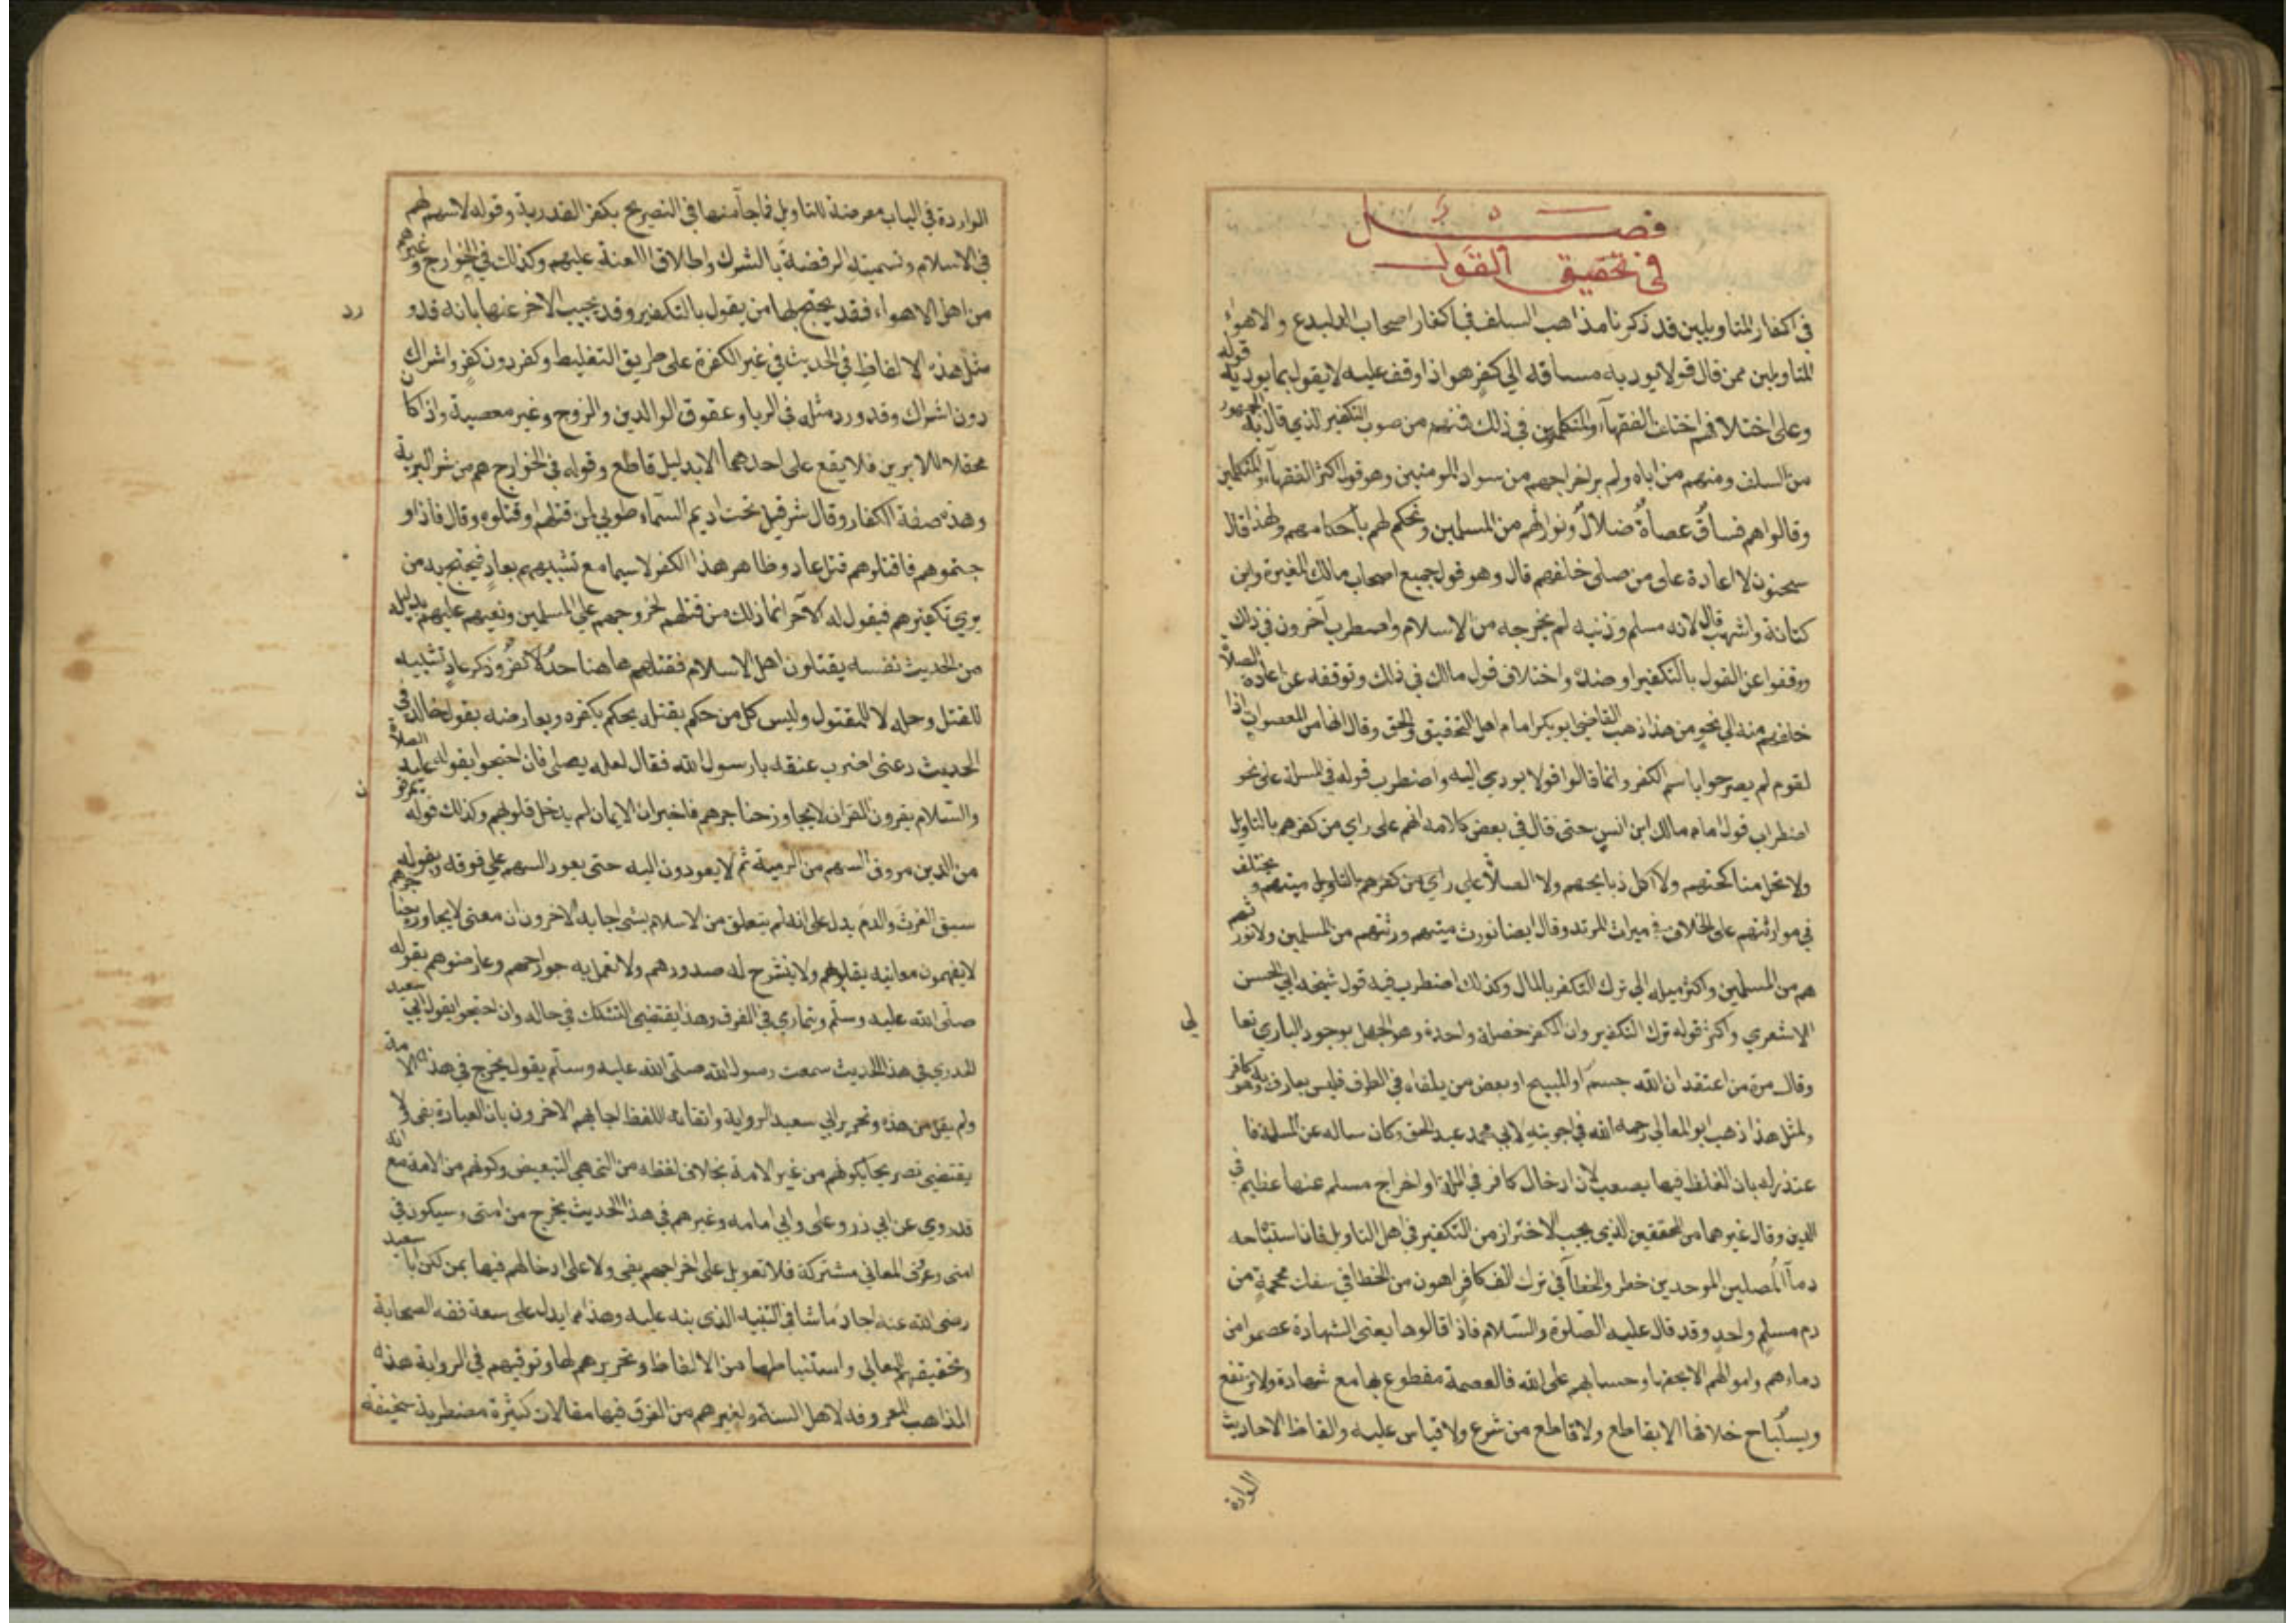 فصل
في تحقيق القول
في اكفار المتاويلين قد ذكرنا مذاهب السلف في اكفار اصحاب البدع والاهواء
المتاويلين ممن قال قولا يوديه مساقه الي كفر هو اذا وقف عليه لا يقول بما يوديه قوله
وعلى اختلافهم اختلف الفقهآء والمتكلمين في ذلك فمنهم من صوب التكفير الذي قال به الجمهور
من السلف ومنهم من اباه ولم ير اخراجهم من سواد المومنين وهو قول اكثر الفقهآء والمتكلمين
وقالوا هم فساقٌ عصاةٌ ضلالٌ ونوارثهم من المسلمين ونحكم لهم باحكامهم ولهذا قال
سحنون لا اعادة على من صلى خلفهم قال وهو قول جميع اصحاب مالك المغيرة وابن
كنانة واشهب قال لانه مسلم وذنبه لم يخرجه من الاسلام واضطرب آخرون في ذلك
ووقفوا عن القول بالتكفير او ضده واختلاف قول مالك في ذلك وتوقفه عن اعادة الصلاة
خلفهم منه الي نحو من هذا ذهب القاضي ابو بكر امام اهل التحقيق والحق وقال انها من المعصوات اذا
لقوم لم يصرحوا باسم الكفر وانما قالوا قولا يوري اليه واضطرب قوله في المسلة على نحو
اضطراب قول امام مالك ابن انس حتى قال في بعض كلامه انهم على راي من كفرهم بالتاويل
ولا تحل مناكحتهم ولا اكل ذبايحهم ولا الصلاة علي راي من كفرهم بالتاويل ميتهم و يختلف
في موارثتهم على الخلاف في ميراث المرتد وقال ايضا نورث ميتهم ورثتهم من المسلمين ولا نور ثهم
هم من المسلمين واكثر ميله الي ترك التكفر بالمال وكذلك اضطرب فيه قول شيخه ابي الحسن
الاشعري واكثر قوله ترك التكفير وان الكفر خصلة واحدة وهو الجهل بوجود الباري تعا
لي
وقال مرة من اعتقد ان الله جسم او المسيح او بعض من يلقاه في الطرق فليس بعارف به وهو كافر
ولمثل هذا ذهب ابو المعالي رحمه الله في اجوبته لابي محمد عبد الحق وكان ساله عن المسلة فا
عتذر له بان الغلظ فيها يصعب لان ادخال كافر في الملة او اخراج مسلم عنها عظيم في
الدين وقال غيرهما من المحققين الذي يجب الاحتراز من التكفير في اهل التاويل فان استباحه
دمآ المصلين الموحدين خطر والخطآ في ترك الف كافر اهون من الخطا في سفك محجمة من
دم مسلم واحد وقد قال عليه الصلوة والسلام فاذا قالوها يعني الشهادة عصموا من
دماءهم واموالهم الا بحقها وحسابهم على الله فالعصمة مقطوع بها مع شهادة ولا ترتفع
ويستباح خلافها الا بقاطع ولا قاطع من شرع ولا قياس عليه والفاظ الاحاديث
الواردة
الواردة في الباب معرضة للتاويل فما جآ منها في التصريح بكفر القدرية وقوله لا سهم لهم
في الاسلام وتسميته الرفضة بالشرك واطلاق اللعنة عليهم وكذلك في الخوارج و غيرهم
من اهل الاهواء فقد يحتج بها من يقول بالتكفير وقد يجيب الاخر عنها بانه قد و
رد
مثل هذه الالفاظ في الحديث في غير الكفرة على طريق التغليط وكفر دون كفر واشراك
دون اشراك وقد ورد مثله في الربا وعقوق الوالدين والزوج وغير معصية واذا كان
محتملا للامرين فلا يقع على احدهما الا بدليل قاطع وقوله في الخوارج هم من شر البرية
وهذه صفة الكفار وقال شر قبيل تحت اديم السماء طوبي لمن قتلهم او قتلوه وقال فاذا و
جتموهم فاقتلوهم قتل عاد وظاهر هذا الكفر لا سيما مع تشبيههم بعاد فيحتج به من
يري تكفيرهم فيقول له الآخر انما ذلك من قتلهم لخروجهم علي المسلمين وبغيهم عليهم بدليله
من الحديث نفسه يقتلون اهل الاسلام فقتلهم هاهنا حدٌ لا كفرٌ وذكر عاد تشبيه
للقتل وحله لا للمقتول وليس كل من حكم بقتله يحكم بكفره ويعارضه بقول خالد في
الحديث دعني اضرب عنقه يا رسول الله فقال لعله يصلي فان احتجوا بقوله عليه الصلاة
والسلام يقرون القران لا يجاوز حناجرهم فاخبر ان الايمان لم يدخل قلوبهم وكذلك قوله يمرقو
ن
من الدين مروق السهم من الرمية ثم لا يعودون اليه حتى يعود السهم علي فوقه وبقوله
سبق الفرث والدم يدل على انه لم يتعلق من الاسلام بشي اجابه الاخرون ان معنى لا يجاوز حنا جرهم
لا يفهمون معانيه بقلوبهم ولا ينشرح له صدورهم ولا تعمل به جوارحهم وعارضوهم بقوله
صلى الله عليه وسلم ويتماري في الفوق وهذا يقتضي التشكك في حاله وان احتجوا بقول ابي سعيد
الخدري في هذا الحديث سمعت رسول الله صلى الله عليه وسلم يقول يخرج في هذه الا مة
ولم يقل من هذه وتحرير ابي سعيد الرواية واتقانه اللفظ اجابهم الاخرون بان العبارة بفي لا
يقتضي تصريحا بكونهم من غير الامة بخلاف لفظه من التي هي للتبعيض وكونهم من الامة مع انه
قد روي عن ابي ذر وعلى وابي امامه وغيرهم في هذا الحديث يخرج من امتي وسيكون في
امتي وحروف المعاني مشتركة فلا تعويل على اخراجهم بفي ولا على ادخالهم فيها بمن لكن ابا سعيد
رضي الله عنه اجاد ما شا في التنبيه الذي بنه عليه وهذا مما يدل على سعة فقه الصحابة
وتحقيقهم المعاني واستنباطها من الالفاظ وتحريرهم لها وتوقيهم في الرواية هذه
المذاهب المعروفة لاهل السنة ولغيرهم من الفرق فيها مقالات كثيرة مضطربة سخيفة